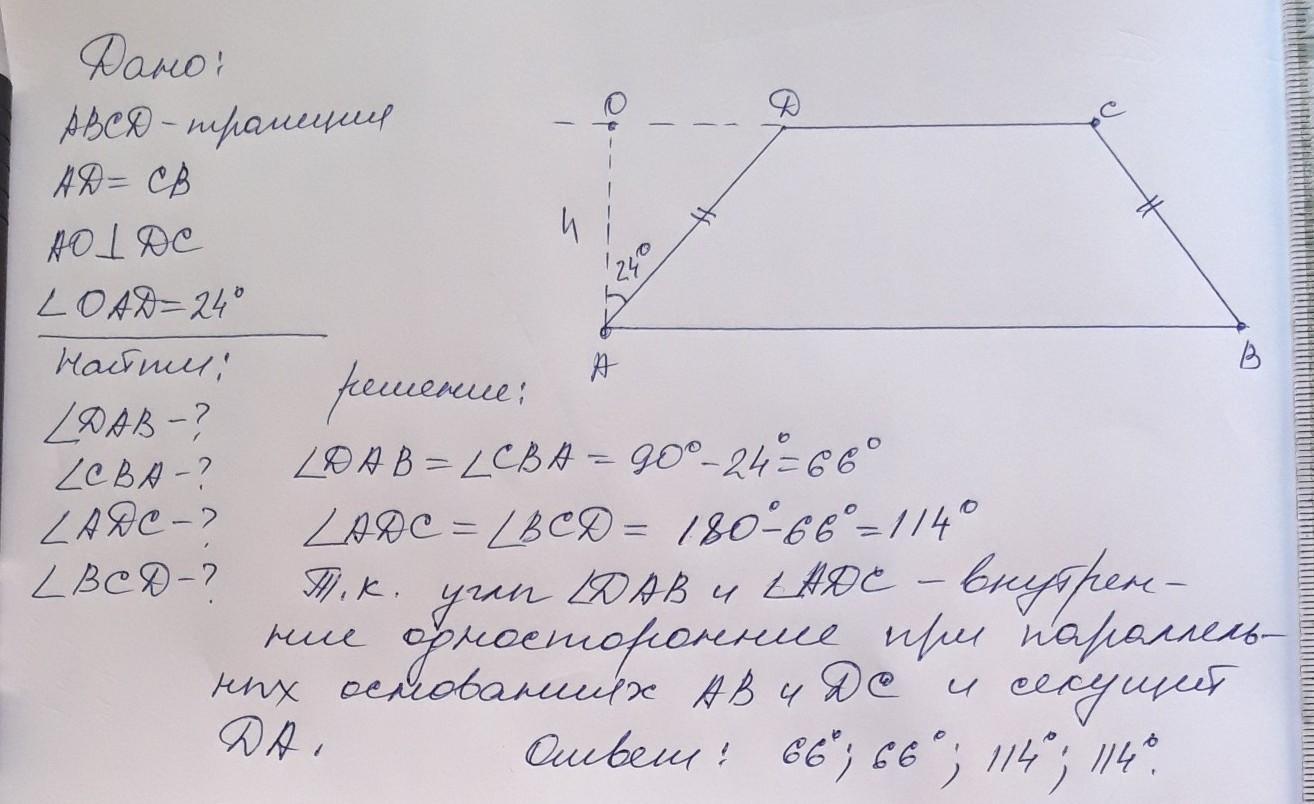 Дано:
ABCD - трапеция
AD = CB
AO ⊥ DC
∠OAD = 24°
Найти:
∠DAB - ?
∠CBA - ?
∠ADC - ?
∠BCD - ?
O D C
h 24°
A B
решение:
∠DAB = ∠CBA = 90° - 24° = 66°
∠ADC = ∠BCD = 180° - 66° = 114°
Т.к. углы ∠DAB и ∠ADC - внутрен-
ние односторонние при параллель-
ных основаниях AB и DC и секущей
DA.
Ответ: 66°; 66°; 114°; 114°.